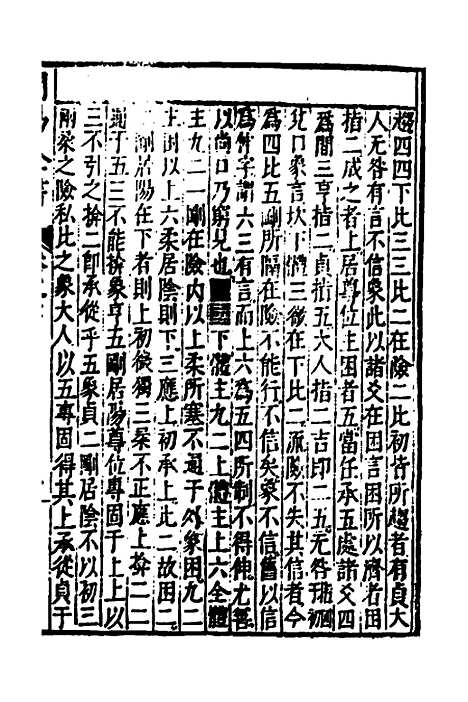 趨四四下比三三比二在險二比初皆所趨者有貞大
人无咎有言不信象此以諸爻在困言困所以濟者困
指二成之者上居尊位主困者五當任承五處諸爻四
為間三亨指二貞指五大人指二吉印二五无咎
兌口象言坎下體三後在下比二派陽不失其信者今
為四比五剛所隔在險不能行不信矣象不信舊以信
為伸字謂六三有言而上六為五四所制不得伸尤
以尚口乃窮見也 下體主九二上體主上六全體
主九二二剛在險內以上柔所塞不通于外象困九二
上困以上六柔居陰則下三應上初承上比二故困二
剛居陽在下者則上初從獨三柔不正應上揜二二
遡于五三不能揜象亨五剛居陽尊位專固于上上以
三不引之揜二即承從乎五象貞二剛居陰不以初三
兩柔之險私比之象大人以五專固得其上承從貞于